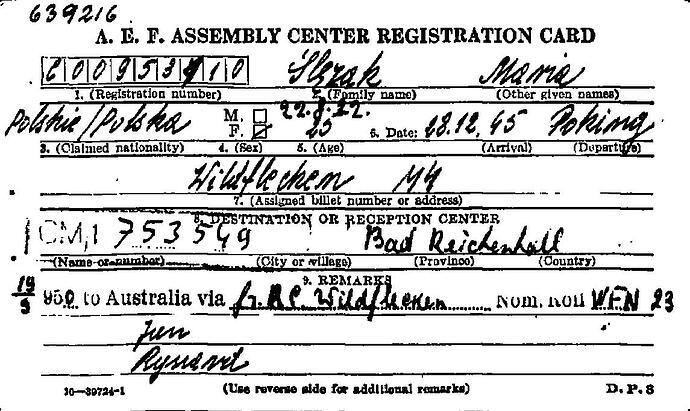 639216
A. E. F. ASSEMBLY CENTER REGISTRATION CARD
G00953910 Slezak Maria
1. (Registration number) 2. (Family name) (Other given names)
Polskie/Polska M. F. 22.8.22. 25 6. Date: 28.12.45 Poking
3. (Claimed nationality) 4. (Sex) 5. (Age) (Arrival) (Departure)
Wildflecken
7. (Assigned billet number or address)
8. DESTINATION OR RECEPTION CENTER
CM,1 753549 Bad Reichenhall
(Name or number) (City or village) (Province) (Country)
9. REMARKS
19/9 950 to Australia via fr. RC Wildflecken Nom. Roll WFN 23
Jan
10—39724-1 (Use reverse side for additional remarks) D.P.S